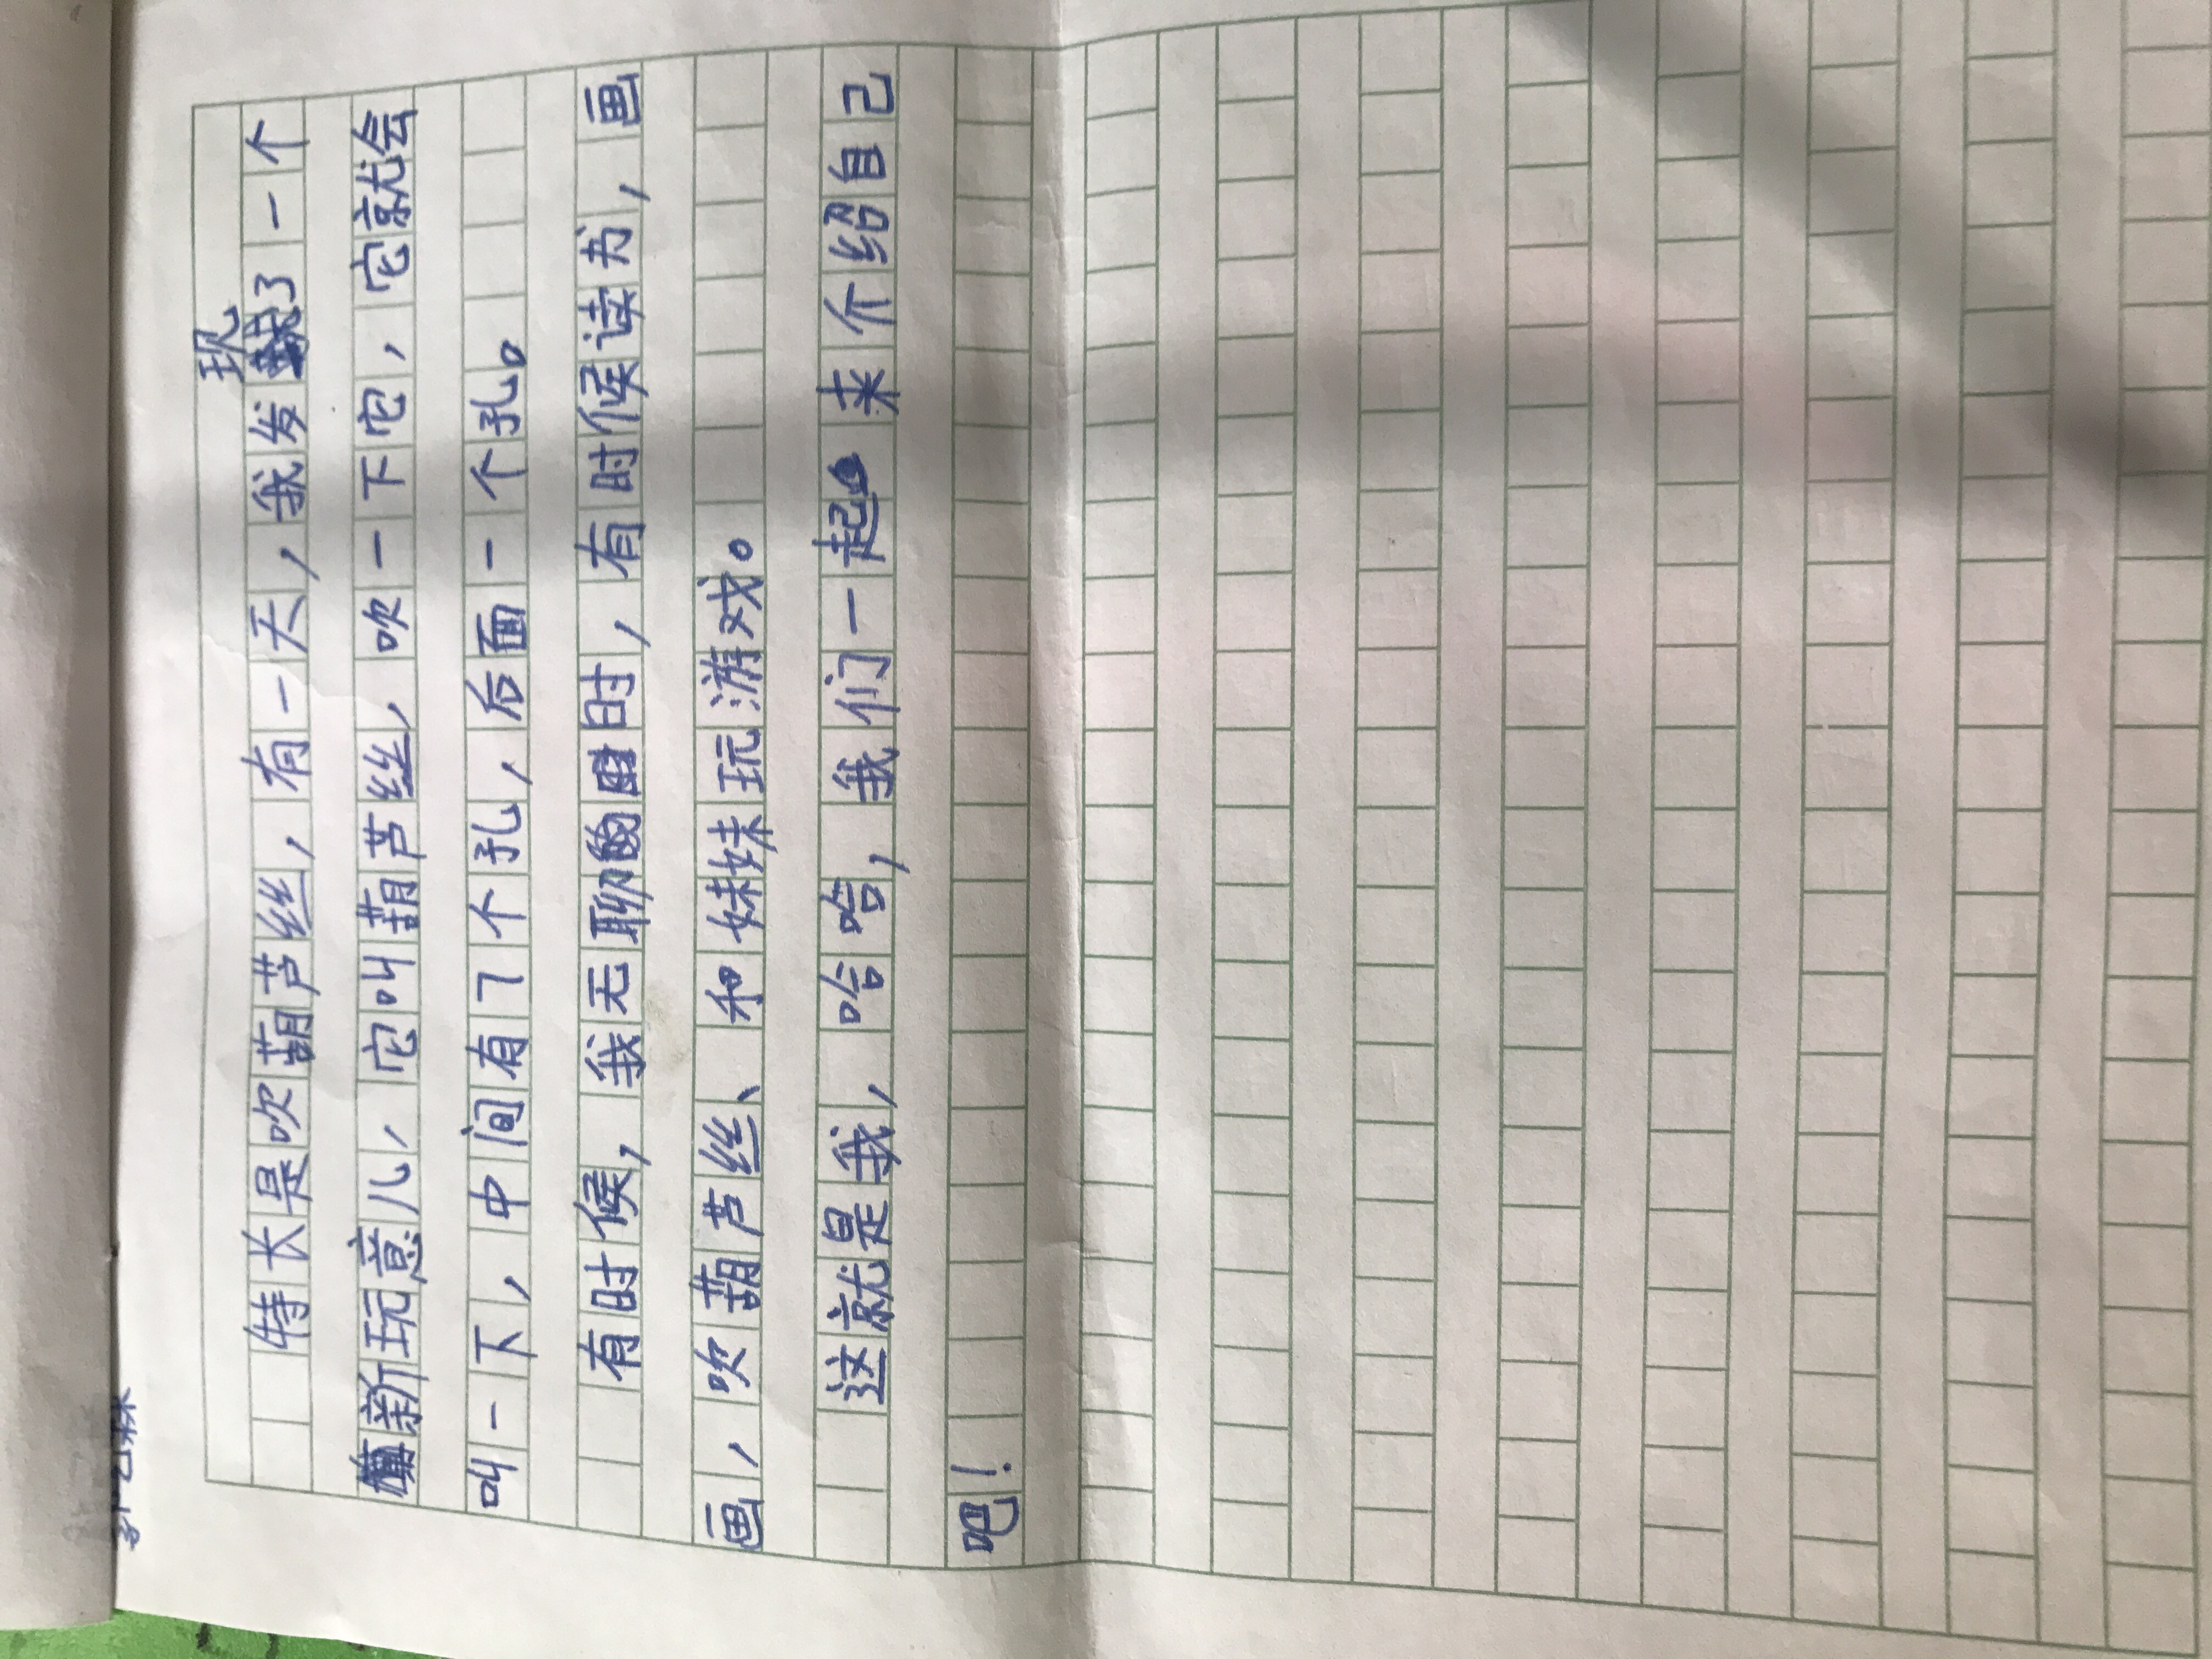 特长是吹葫芦丝，有一天，我发现了一个
新玩意儿，它叫葫芦丝，吹一下它，它就会
叫一下，中间有7个孔，后面一个孔。
有时候，我无聊时，有时候读书，画
画，吹葫芦丝、和妹妹玩游戏。
这就是我，哈哈，我们一起来介绍自己
吧！